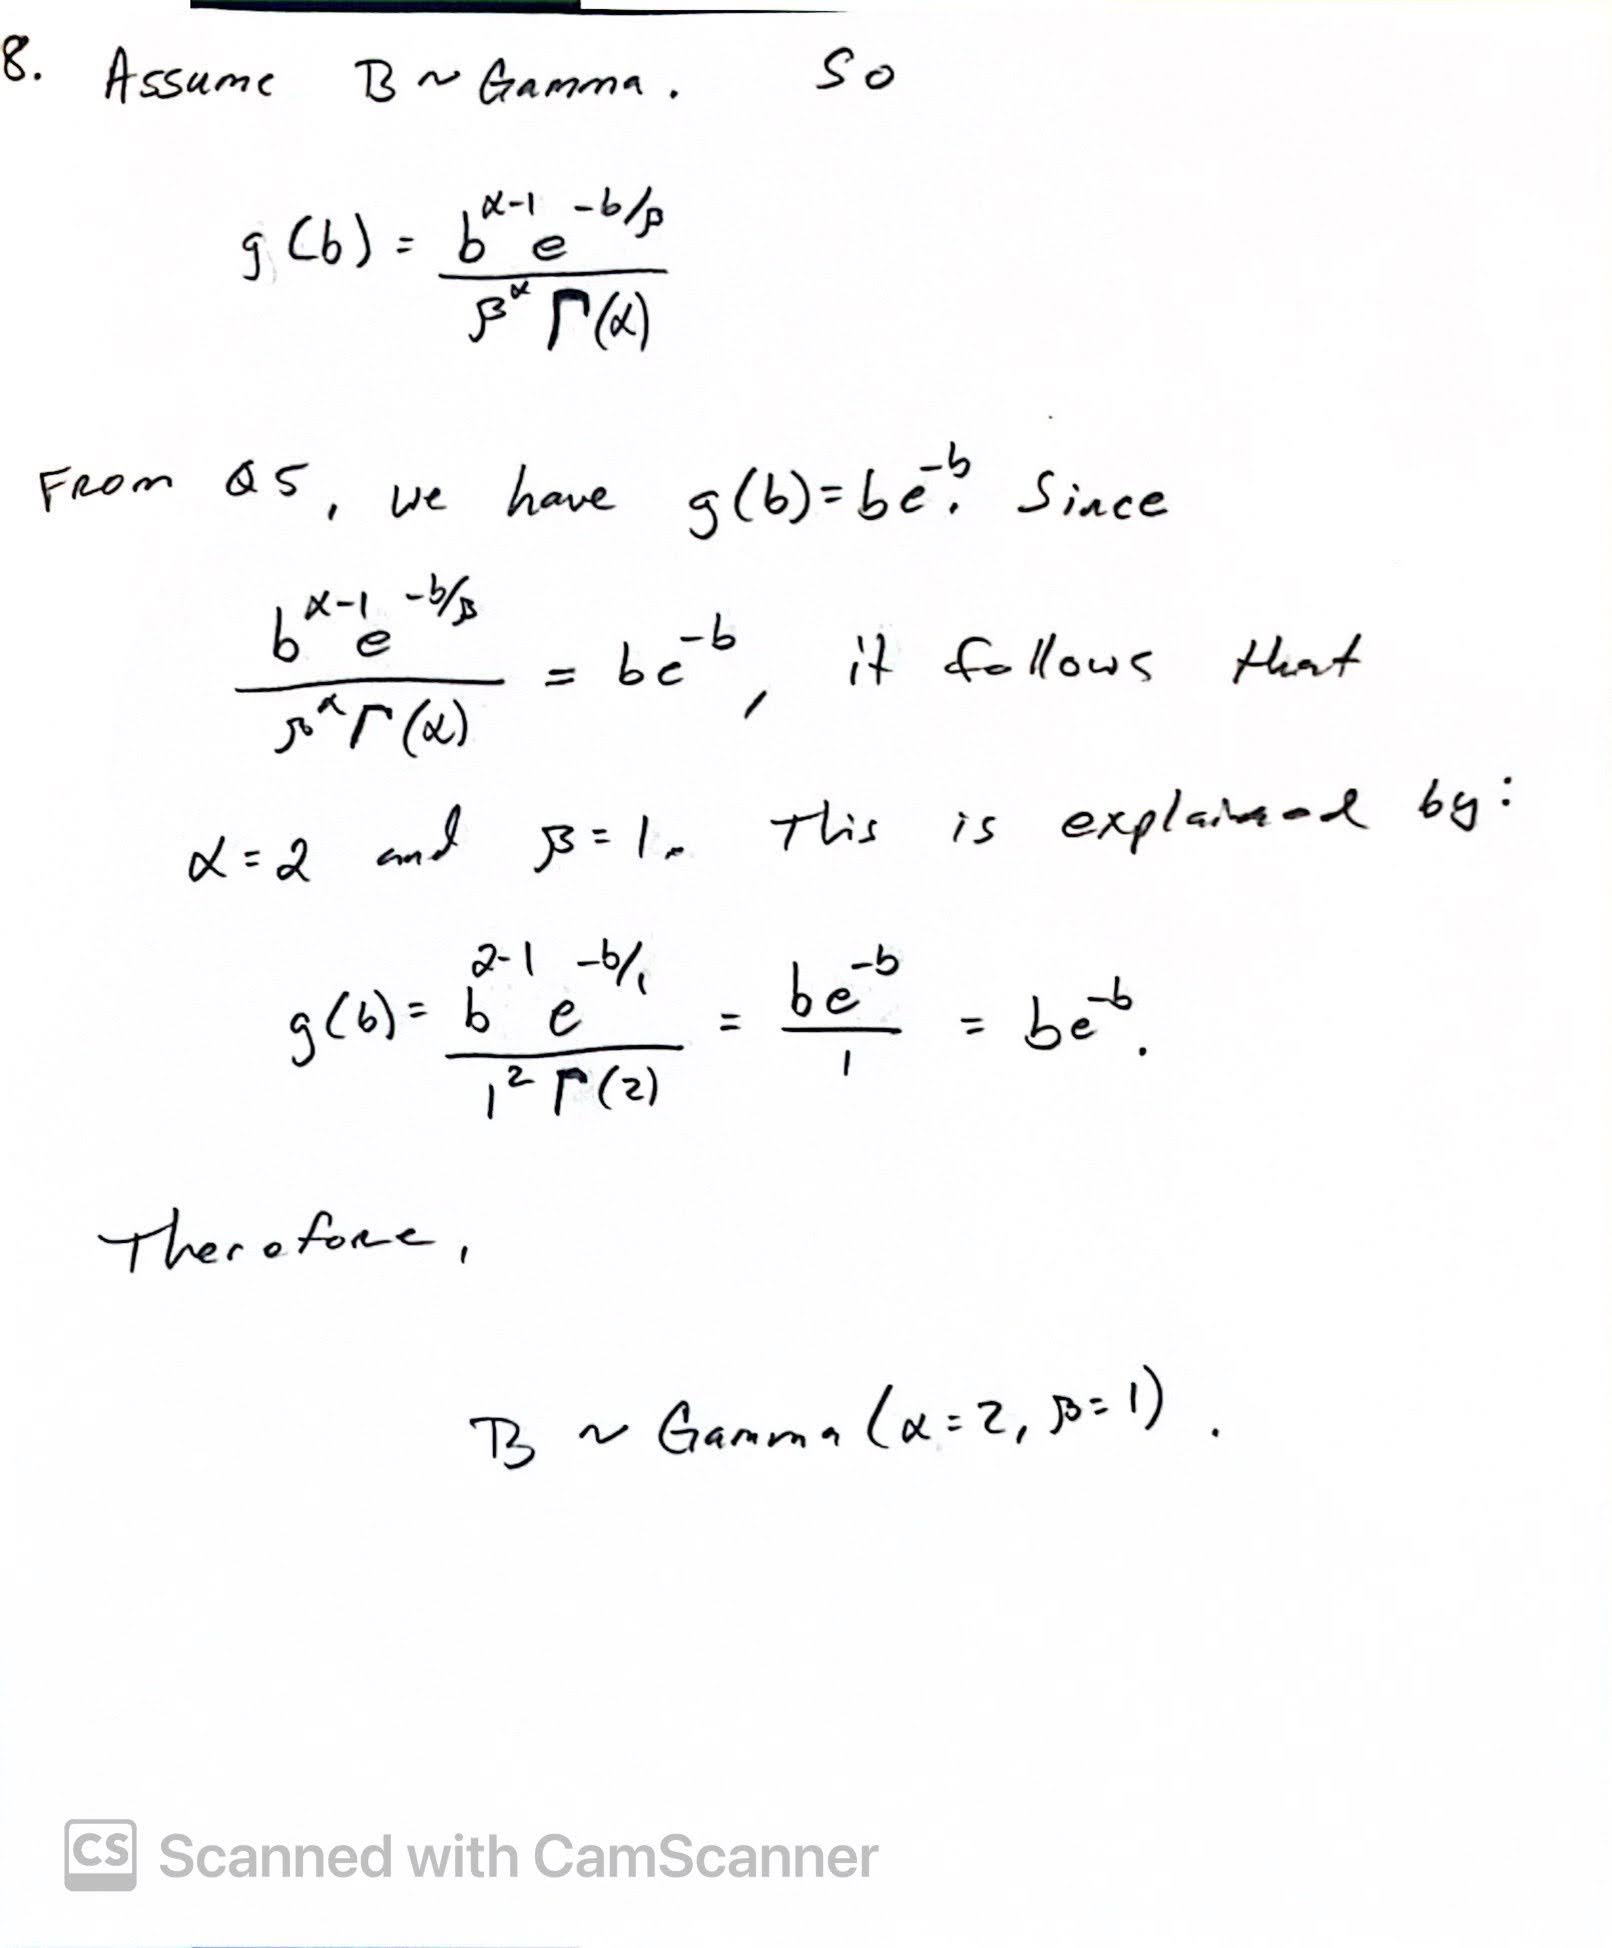 8. Assume B ~ Gamma. So
g(b) = b^(α-1) e^(-b/β) / β^α Γ(α)
From Q5, we have g(b) = be^(-b). Since
b^(α-1) e^(-b/β) / β^α Γ(α) = be^(-b), it follows that
α = 2 and β = 1. This is explained by:
g(b) = b^(2-1) e^(-b/1) / 1^2 Γ(2) = be^(-b) / 1 = be^(-b).
Therefore,
B ~ Gamma (α = 2, β = 1).
CS Scanned with CamScanner